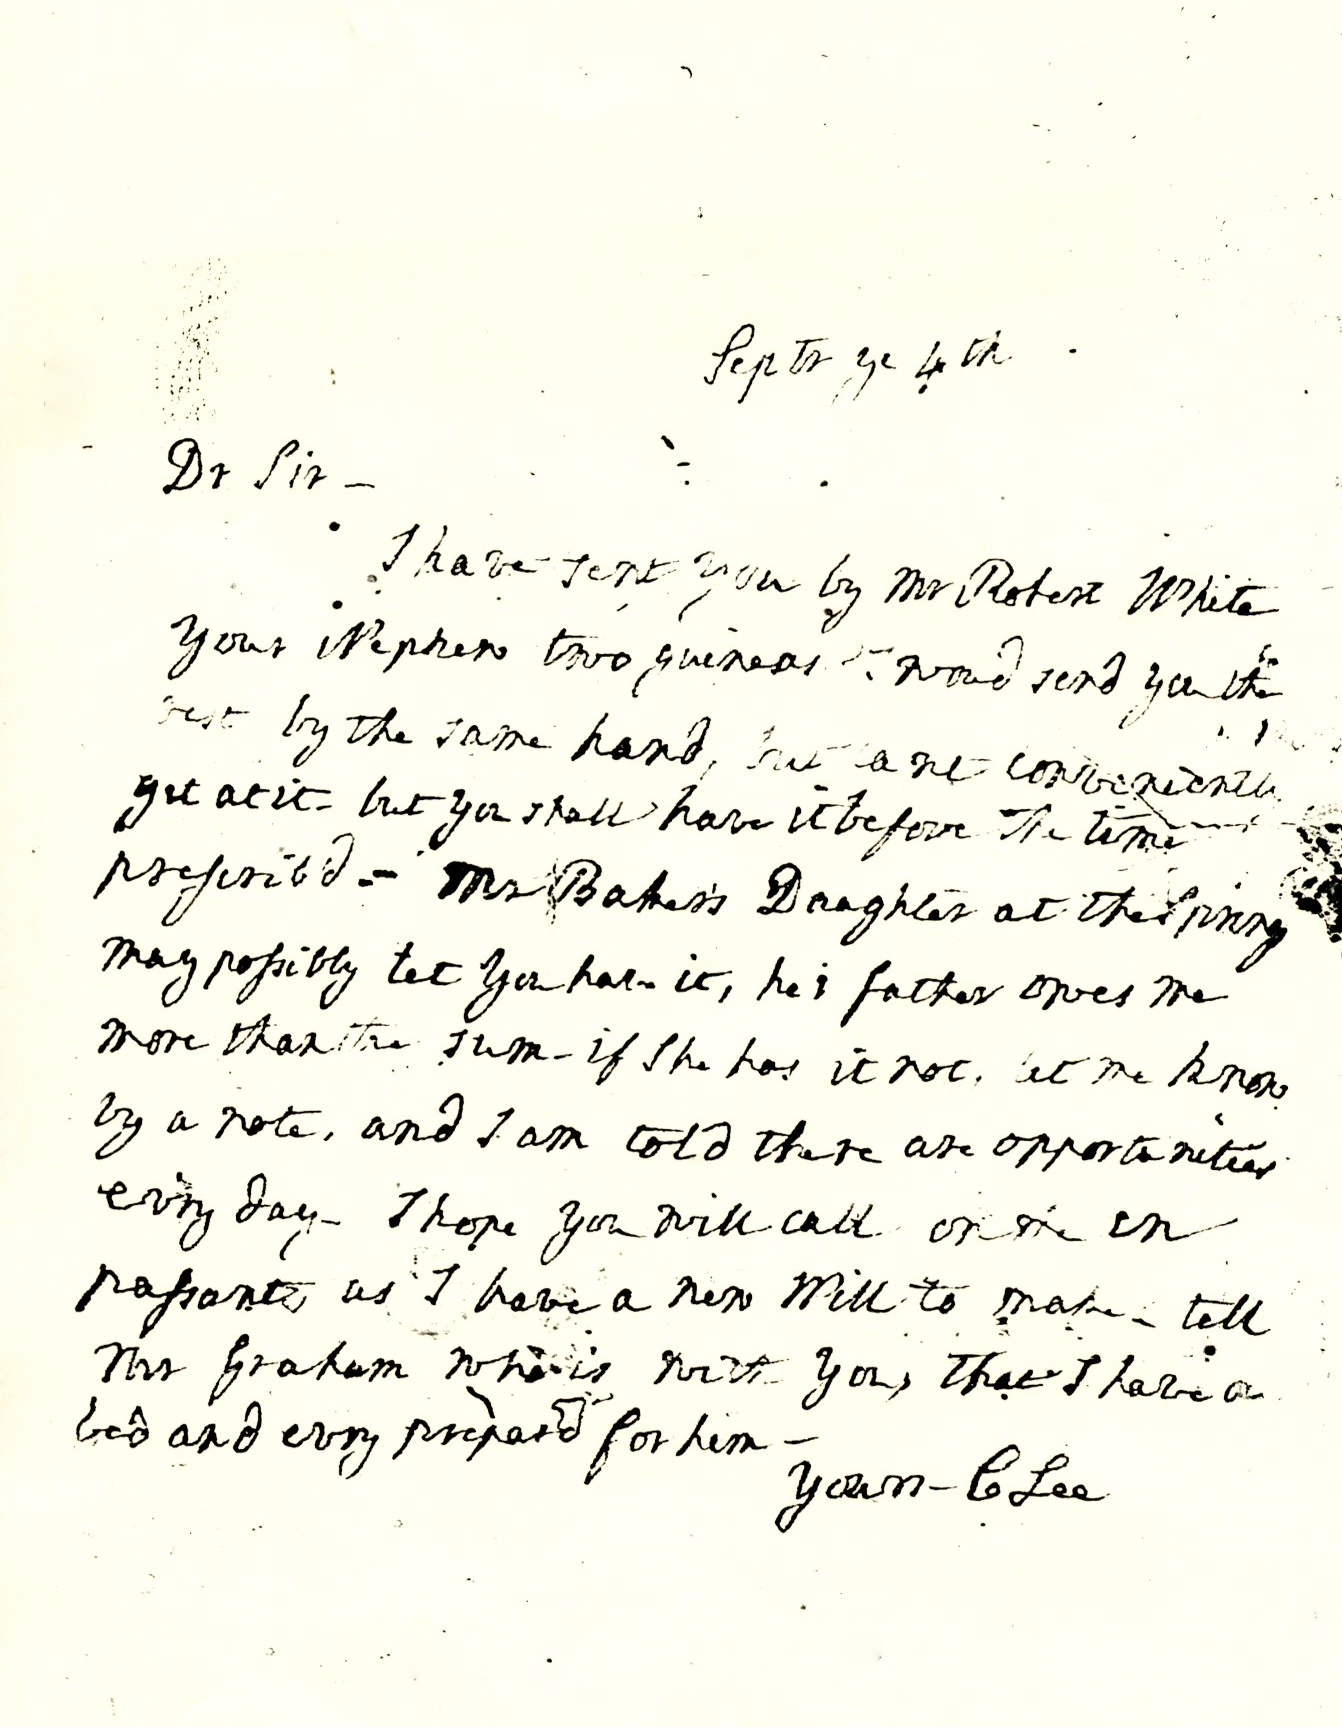 Septr ye 4th
Dr Sir –
I have sent you by Mr Robert White
Your Nephew two guineas – woud send you the
rest by the same hand, but cant conveniently
get at it – but you shall have it before the time
prescrib'd – Mr Bakers Daughter at the Spring
may possibly let you have it, her father owes me
more than the sum – if She has it not, let me know
by a note, and I am told there are opportunities
evry day – I hope you will call on me en
passant, as I have a new Will to make – tell
Mr Graham who is with you, that I have a
bed and evry prepard for him –
Yours – C Lee